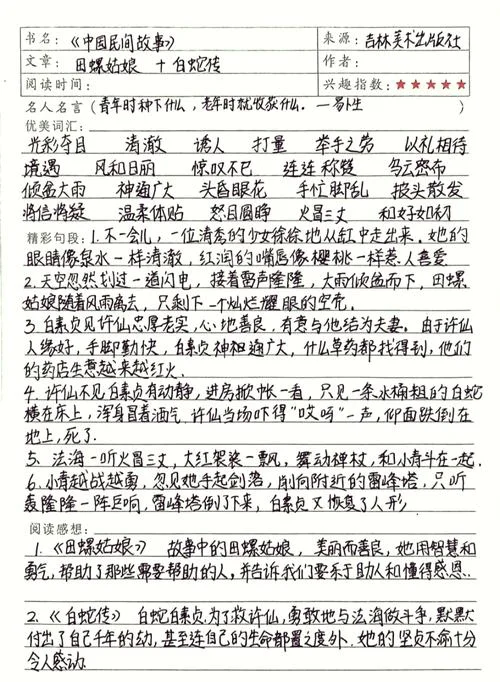 书名：《中国民间故事》 来源：吉林美术出版社
文章：田螺姑娘 + 白蛇传 作者：
阅读时间： 兴趣指数：★★★★★
名人名言（青年时种下什么，老年时就收获什么. —易卜生 ）
优美词汇：
光彩夺目 清澈 诱人 打量 举手之劳 以礼相待
境遇 风和日丽 惊叹不已 连连称赞 乌云密布
倾盆大雨 神通广大 头昏眼花 手忙脚乱 披头散发
将信将疑 温柔体贴 怒目圆睁 火冒三丈 和好如初
精彩句段：1. 不一会儿，一位清秀的少女徐徐地从缸中走出来. 她的
眼睛像泉水一样清澈，红润的嘴唇像樱桃一样惹人喜爱
2. 天空忽然划过一道闪电，接着雷声隆隆，大雨倾盆而下，田螺
姑娘随着风雨离去，只剩下一个灿烂耀眼的空壳.
3. 白素贞见许仙忠厚老实，心地善良，有意与他结为夫妻. 由于许仙
人缘好，手脚勤快，白素贞神通广大，什么草药都找得到，他们
的药店生意越来越红火.
4. 许仙不见白素贞有动静，进房掀帐一看，只见一条水桶粗的白蛇
横在床上，浑身冒着酒气. 许仙当场吓得“哎呀”一声，仰面跌倒在
地上，死了.
5. 法海一听火冒三丈，大红袈裟一飘，舞动禅杖，和小青斗在一起.
6. 小青越战越勇，忽见她手起剑落，削向附近的雷峰塔，只听
轰隆隆一阵巨响，雷峰塔倒了下来，白素贞又恢复了人形
阅读感想：
1.《田螺姑娘》 故事中的田螺姑娘，美丽而善良，她用智慧和
勇气，帮助了那些需要帮助的人，并告诉我们要乐于助人和懂得感恩.
2.《白蛇传》 白蛇白素贞为了救许仙，勇敢地与法海做斗争，默默
付出了自己千年的功，甚至连自己的生命都置之度外. 她的坚贞不渝十分
令人感动.